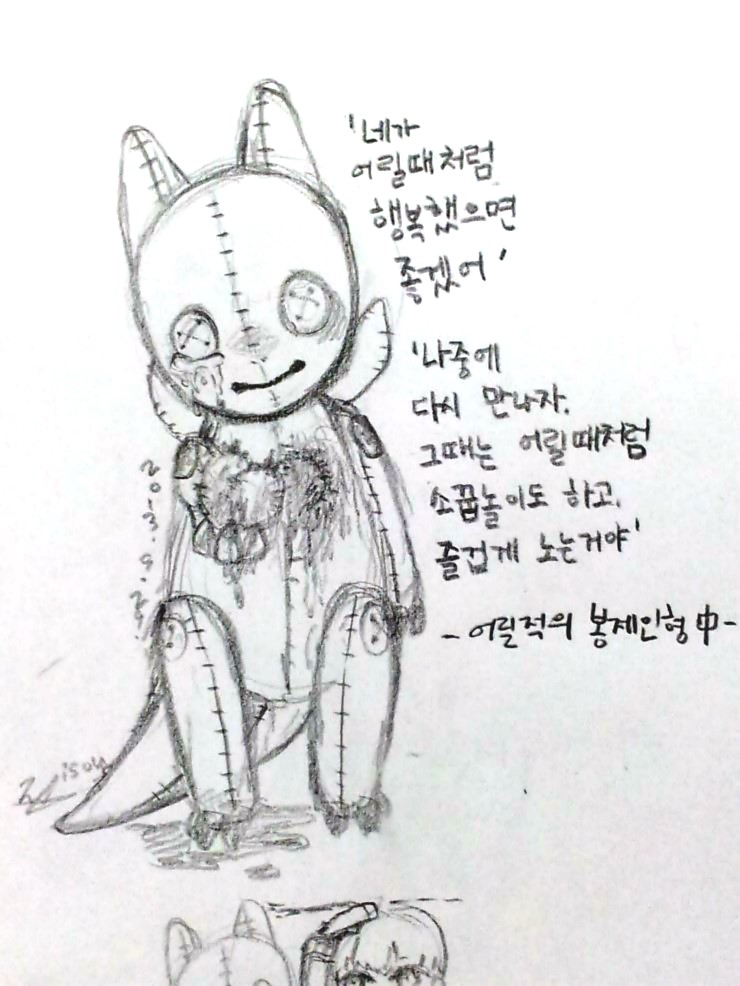 '네가
어릴때처럼
행복했으면
좋겠어'
'나중에
다시 만나자.
그때는 어릴때처럼
소꿉놀이도 하고,
즐겁게 노는거야'
- 어릴적의 봉제인형 中 -